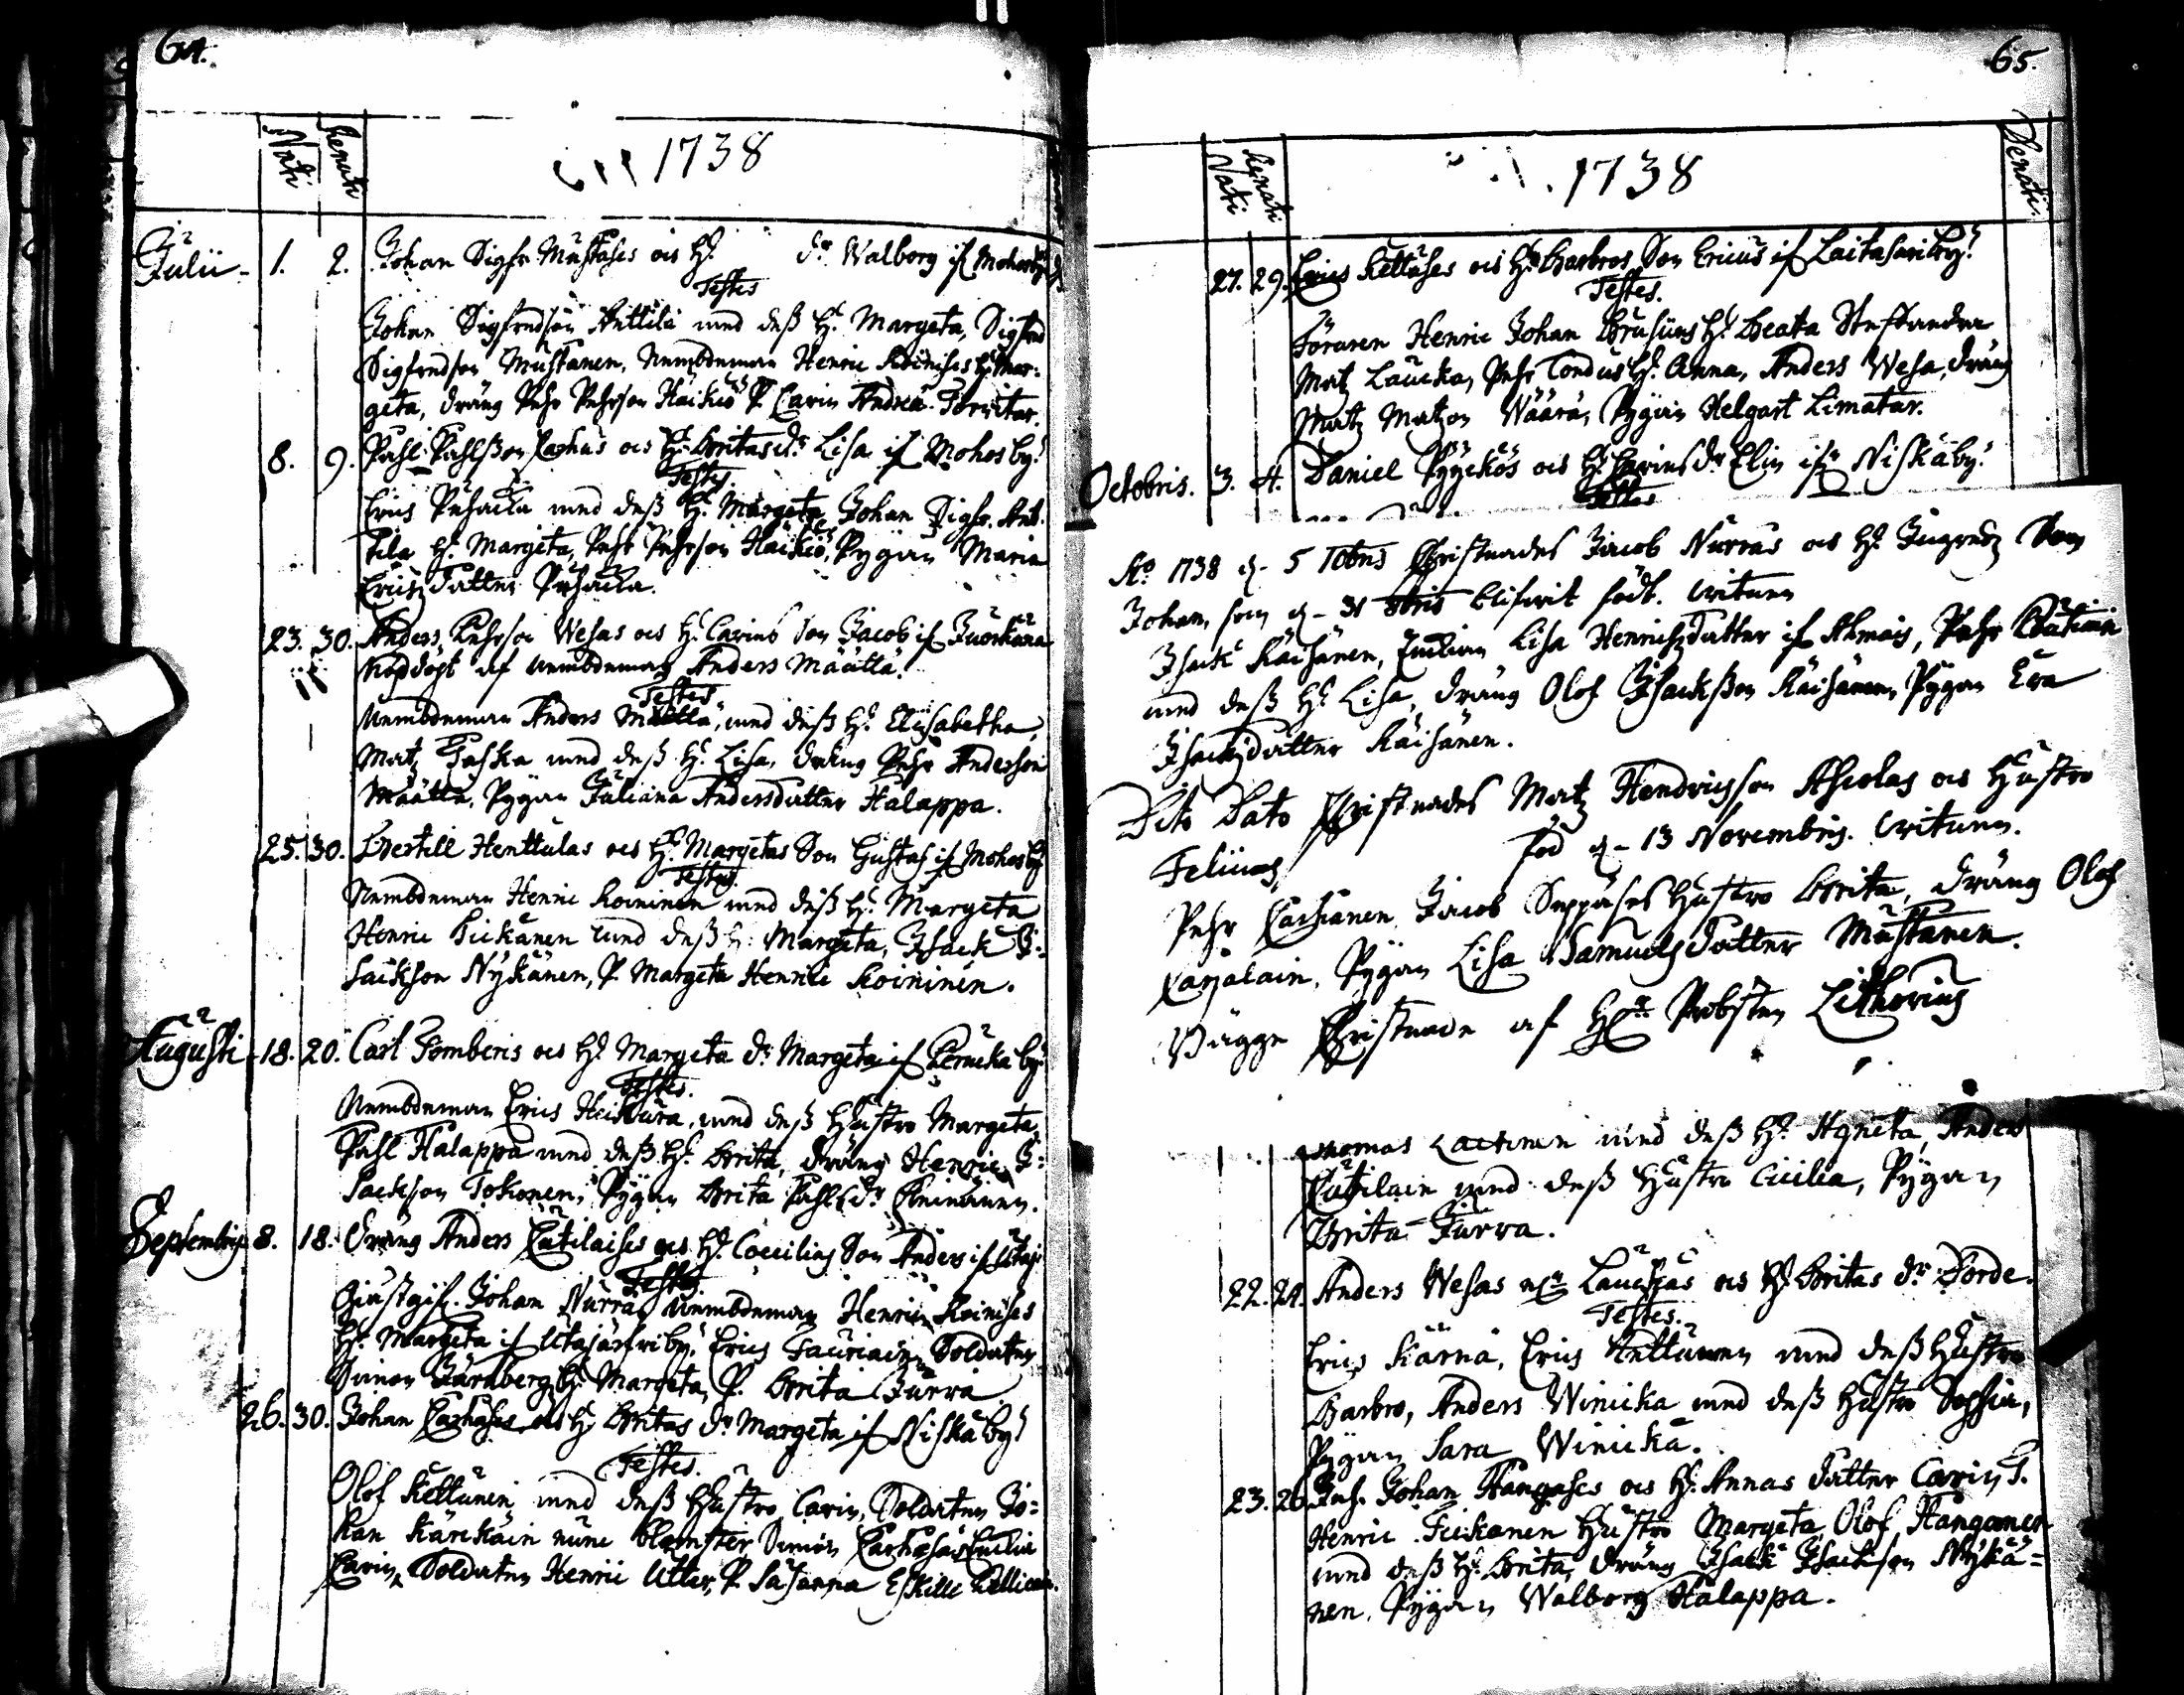 64.
Nati
Renati
1738
Julii - 1. 2. Johan Sigfr Mustases os H: dr Walborg if Mohosby
Testes
Johan Sigfredsson Anttila med dess H: Margeta, Sigfred
Sigfredson Mustanen, Nembdeman Henric Koinises H: Mar=
geta, dräng Pehr Pehrson Haikiö P. Carin Andrea
8. 9. Påhl Påhlsson Karhus os H: Britas dr Lisa if Mohosby
Testes
Erics Pusacka med dess H: Margeta Johan Sigfr. Ant-
tila H: Margeta, Pehr Pehrson Haikiö, Pygan Maria
Ericsdatter Pusacka.
23. 30. Anders Pehrson Wesas os H: Carins Son Jacob if
af Nembdeman Anders Määttä.
Testes
Nembdeman Anders Määttä, med dess H: Elisabetha,
Matz Jaska med dess H: Lisa, dräng Pehr Anderson
Määttä, Pygan Juliana Andersdatter Halappa.
25. 30. Bertill Henttulas os H: Margetas Son Gustaf if Mohosby
Testes
Nembdeman Henric Koininen med dess H: Margeta
Henric Fickanen med dess H: Margeta, Isack I=
sackson Nykänen, P. Margeta Henric Koininen.
Augusti - 18. 20. Carl Fombens os H: Margeta dr Margeta if by
Testes.
Nembdeman Erics Heickura, med dess Hustro Margeta,
Påhl Halappa med dess H: Brita, dräng Henric I=
sackson Tokonen, Pygan Brita Påhls dr
Septembris 8. 18. Dräng Anders Cutilaises os H: Coecilias Son Anders if
Testes
Giästgif. Johan Nurras Nembdeman Henric Koinises
H: Margeta if Utajärfwi by, Erics Lauriain, Soldaten
Simon Järnberg H: Margeta, P. Brita Jurva
26. 30. Johan Karhuses os H: Britas dr Margeta if Niskaby
Testes.
Olof Kettunen med dess Hustro Carin, Soldaten Jo=
han Kärckäin nunc Blomster Simon
Carin, Soldaten Henric Utter, P. Susanna Eskille
65.
Nati
Renati
1738
Denati.
27. 29. Erics Kettuses os H: Barbros Son Ericus if Laitasari by
Testes.
Henric Johan Brusiins H: Beata
Matz Laucka, Pehr Tondus H: Anna, Anders Wesa, dräng
Matz Matzon Wäärä, Pygan Helgart Limatar.
Octobris. 3. 4. Daniel Pyyckös os H: Carins dr Elin if Niskaby
Testes
Ao 1738 d. 5 10bris Christnades Jacob Nurras os H: Ingrids Son
Johan, som d. 31 8bris blifwit född. witnen
Isack Räisänen, Lisa Henricsdatter if Ahmas, Pehr
med dess H: Lisa, dräng Olof Isacksson Räisänen, Pygan Eva
Isacksdatter Räisänen.
Dito Dato Christnades Matz Hendricsson Aholas os Hustro
Felicias, föd d. 13 Novembris. witnen.
Pehr Jacob Seppäses Hustro Brita, dräng Olof
Karjalain, Pygan Lisa Samuelsdatter Mustanen.
Bägge Christnade af Hr Probsten Lithovius
Thomas med dess H: Agneta, Anders
Cutilain med dess Hustro Cicilia, Pygan
Brita Jurva.
22. 24. Anders Wesas os H: Britas dr
Testes.
Erics Kärnä, Erics Anttunen med dess Hustro
Barbro, Anders Winicka med dess Hustro Sophia,
Pygan Sara Winicka.
23. 26. Johan Hangases os H: Annas datter Carin T.
Henric Fickanen Hustro Margeta Olof Hanganen
med dess H: Brita, dräng Isack Isackson Nykä=
nen, Pygan Walborg Halappa.